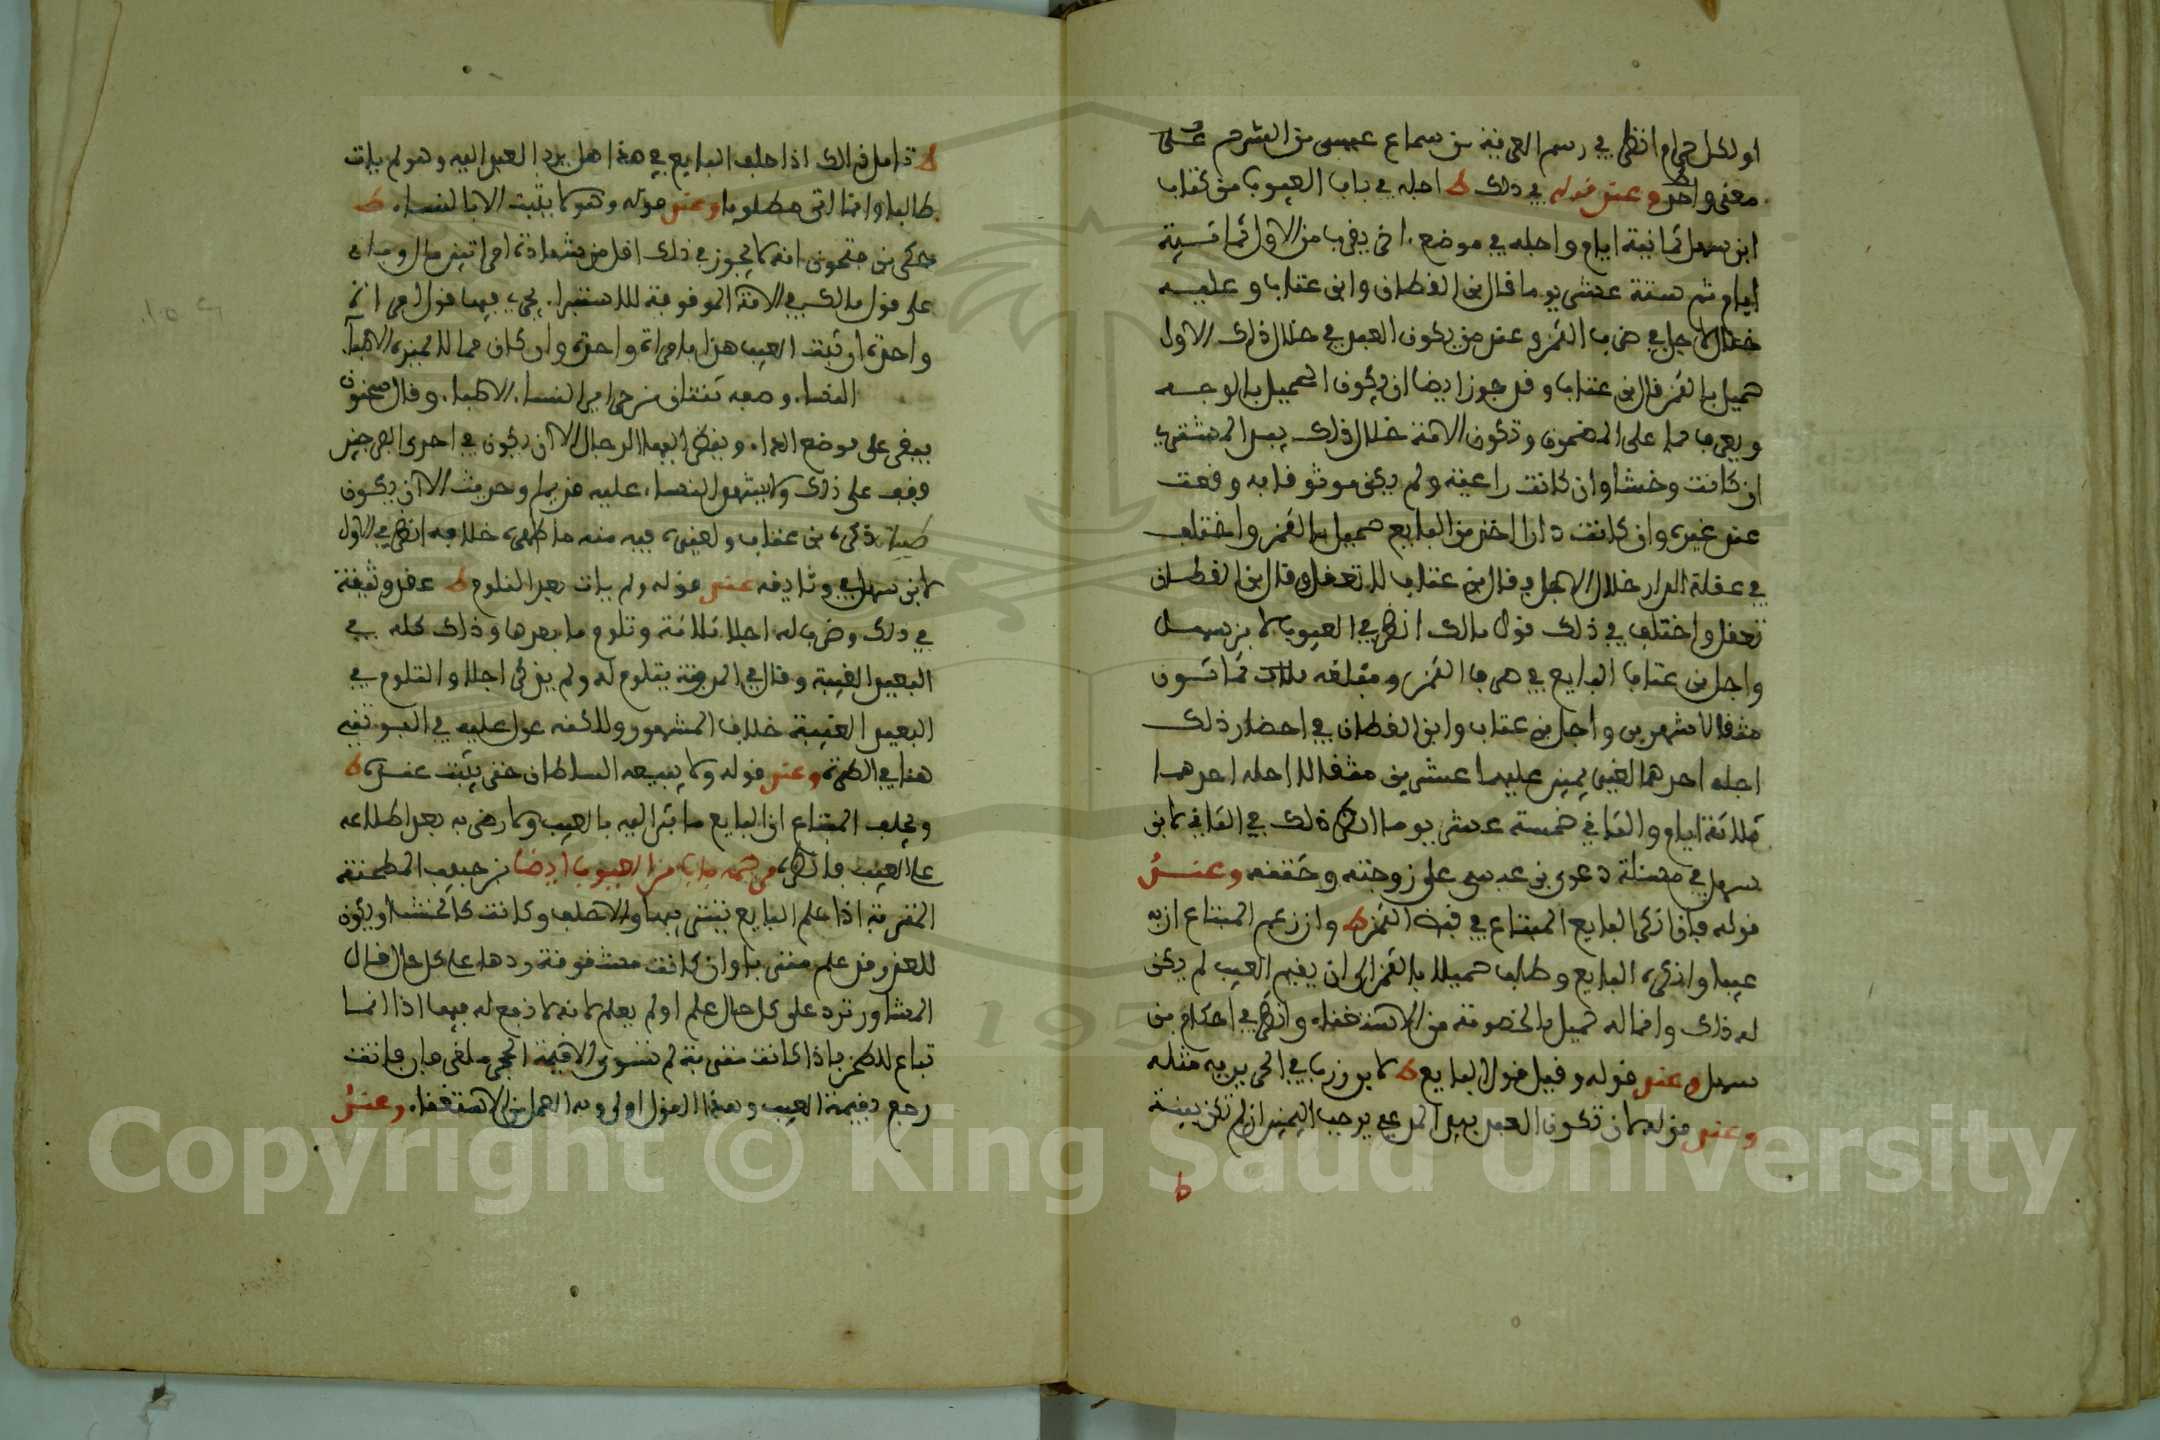 او لكل حرام انظر في رسم العرية من سماع عيسى من العشرة على
معنى واحد وعند قوله في ذلك ط اجله في باب العيوب من كتاب
ابن سهل ثمانية ايام واجله في موضع اخر يقرب من الاول ثمانية
ايام ثم ستة عشر يوما قال ابن القطان وابن عتاب وعليه
خلال الاجل في ضرب الثمن وعند من يكون العبد في خلال ذلك الاول
حميل بالثمن قال ابن عتاب وقد جوز ايضا ان يكون الحميل بالوجه
على المضمون وتكون الامة خلال ذلك بيد المشتري
ان كانت وخشا وان كانت رائعة ولم يكن موثوقا به وقعت
عند غيره وان كانت دارا اخذ من البايع حميل بالثمن واختلف
في عقلة الدار خلال الاجل فقال ابن عتاب لا تعقل وقال ابن القطان
تعقل واختلف في ذلك قول مالك انظر في العيوب لابن سهل
واجل ابن عتاب البايع في ضرب الثمن ومبلغه ثمانون
مثقالا شهرين واجل ابن عتاب وابن القطان في احضار ذلك
اجله احدهما لغير يمين عليها عشرين مثقالا اجله احدهما
ثلاثة ايام والثاني خمسة عشر يوما انظر ذلك في الثاني لابن
سهل في مسئلة دعوى بن عيسى على زوجته وختنه وعند
قوله فان ذكر البايع المبتاع في قبض الثمن ط وان زعم المبتاع ان به
عيبا وانكره البايع وطلب حميلا بالثمن الى ان يقيم العيب لم يكن
له ذلك وانما له حميل بالخصومة من الاستغناء وانظر في احكام بن
سهل وعند قوله وقيل قول البايع ط لابن زرب في الحرير به مثله
وعند قوله لان تكون العبد بيد المدعي يوجب اليمين ان لم تكن بينة
ط
ط تامل في ذلك اذا حلف البايع في هذا هل يرد العبد اليه وهو لم يات
طالبا وانما اتى مطلوبا وعند قوله وهو لا يثبت الا بالنساء ط
حكى بن فتحون انه لا يجوز في ذلك اقل من شهادة امراتين قال
على قول مالك في الامة الموقوفة للاستبراء يجزي فيها قول امراة
واحدة او ثبت العيب هذا بامراة واحدة وان كان مما لا يميزه الاطباء
النساء وصفه ثنتان من خيار النساء الاطباء وقال سحنون
يبقى على موضع الداء وينظر اليها الرجال الا ان يكون في احدى الفرجين
وقف على ذلك ولا يشهد النساء عليه قديم او حديث الا ان يكون
ذكره بن عتاب ولغيره فيه منه ما ظهر خلافه انظر في الاول
لابن سهل في وثايقه عند قوله ولم يات بعد التلوم ط عقد وثيقة
في ذلك وضرب له اجلا ثلاثة وتلوم ما بعدها وذلك كله في
البعيد الغيبة وقال في المدونة يتلوم له ولم يذكر اجلا والتلوم في
البعيد الغيبة خلاف المشهور ولاكنه عول عليه في
هنا في الطرة وعند قوله ولا يبيعه السلطان حتى يثبت عنده ط
ويحلف المبتاع ان البايع ما تبرا اليه بالعيب ولا رضي به بعد اطلاعه
على العيب فانظره من ثمه باب من العيوب ايضا بن حبيب المطحنة
المغربة اذا علم البايع والا حلف وكانت كالخشب او يكون
للعفن وقد علم متى باع وان كانت مشقوقة ردها على كل حال قال
المشاور ترد على كل حال علم او لم يعلم لانه لا نفع له فيها اذا انما
تباع للطحن فاذا كانت مغربة لم تسوى الا قيمة الحجر ملقى فان فاتت
رجع بقيمة العيب وهذا القول اولى وبه العمل من الاستغناء وعند
Copyright © King Saud University
195